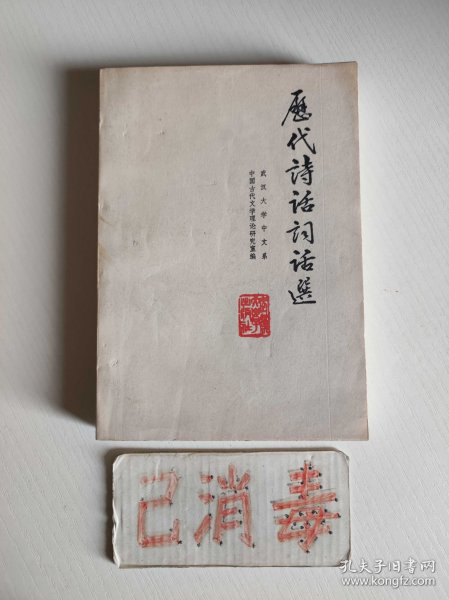 歷代詩话词话選
武汉大学中文系
中国古代文学理论研究室编
武漢大學出版社
已消毒
孔夫子旧书网
www.kongfz.com